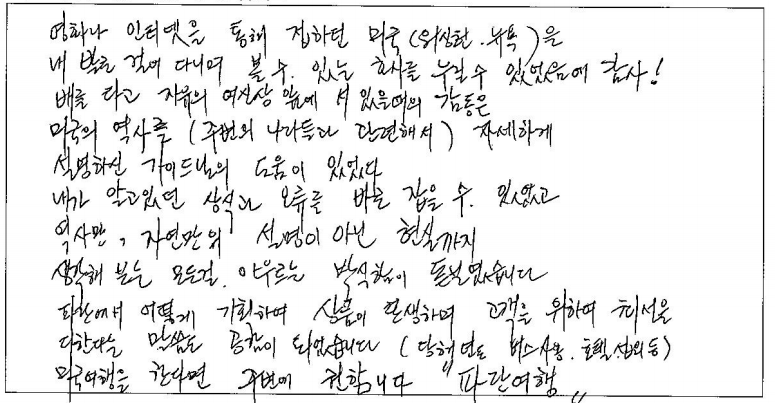 영화나 인터넷을 통해 접하던 미국(워싱턴.뉴욕)을
내 발로 걸어 다니며 볼 수. 있는 호사를 누릴 수 있었음에 감사!
배를 타고 자유의 여신상 앞에 서 있을때의 감동은
미국의 역사를 (주변의 나라들과 관련해서) 자세하게
설명하신 가이드님의 도움이 있었다
내가 알고있던 상식과 오류를 바로 잡을 수. 있었고
역사만, 자연만의 설명이 아닌 현실까지
생각해 보는 모든걸. 아우르는 박식함이 돋보였습니다
파란에서 어떻게 기획하여 상품이 탄생하며 고객을 위하여 최선을
다한다는 말씀도 공감이 되었습니다 ( 버스사용. 호텔 등)
미국여행을 한다면 주변에 권합니다 "파란여행"